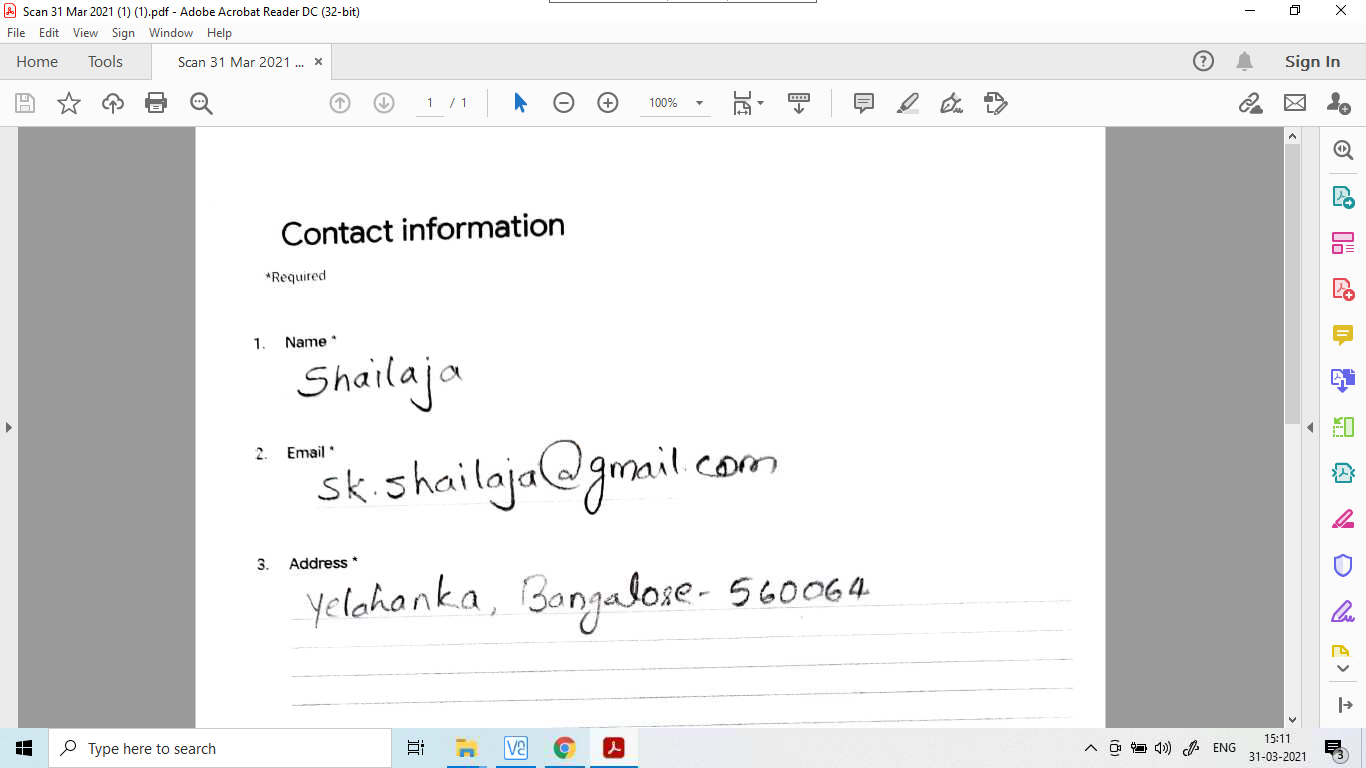 Scan 31 Mar 2021 (1) (1).pdf - Adobe Acrobat Reader DC (32-bit)
File Edit View Sign Window Help
Home Tools Scan 31 Mar 2021 ... × Sign In
1 / 1 100%
Contact information
*Required
1. Name *
Shailaja
2. Email *
sk.shailaja@gmail.com
3. Address *
Yelahanka, Bangalore - 560064
Type here to search
ENG
15:11
31-03-2021
3